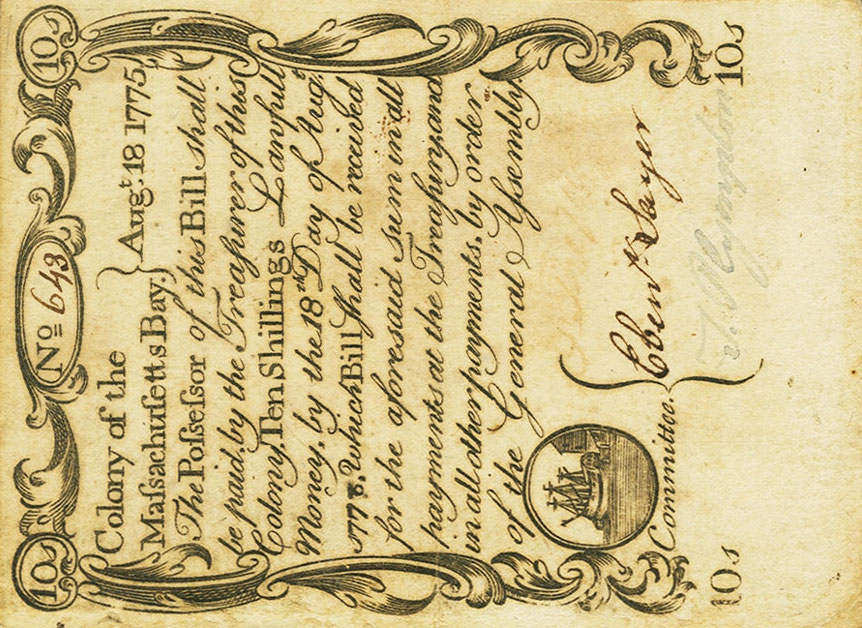 10s Nº 643 10s
Colony of the
Maſsachuſetts Bay, } Augt. 18 1775,
The Poſseſsor of this Bill shall
be paid, by the Treaſurer of this
Colony, Ten Shillings Lawfull
Money, by the 18th Day of Augt.
1778, Which Bill ſhall be received
for the aforesaid sum in all
payments at the Treaſury, and
in all other payments, by order
of the General Aſsembly
Ebenr Sayer
Committee.
10s 10s